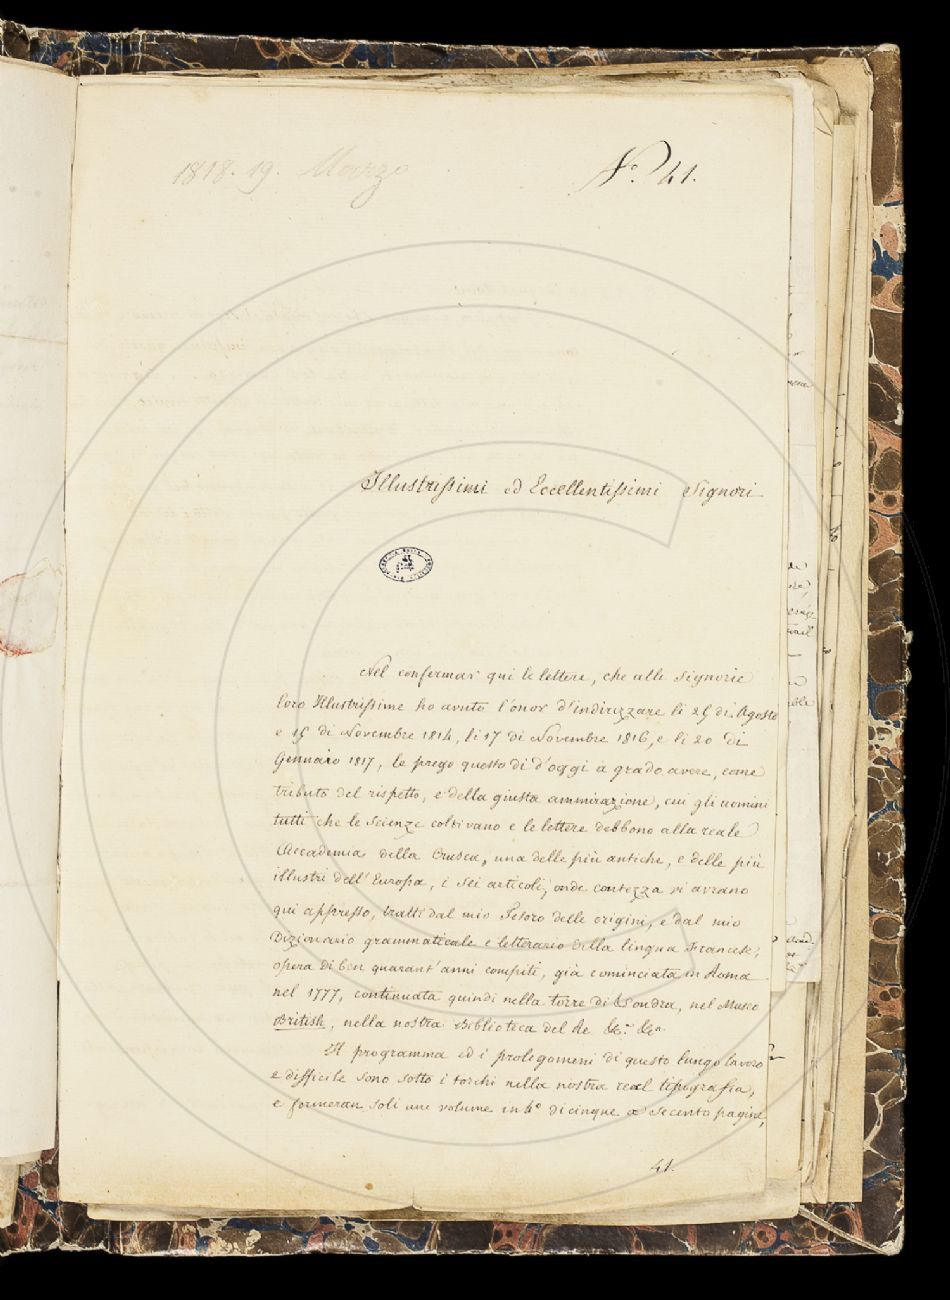 1818. 19. Marzo
N.° 41.
Illustrissimi ed Eccellentissimi Signori
Nel confermar qui le lettere, che alle Signorie
loro Illustrissime ho avuto l'onor d'indirizzare li 25 di Agosto
e 15 di Novembre 1814, li 17 di Novembre 1816, e li 20 di
Gennaio 1817, le prego questo dì d'oggi a grado avere, come
tributo del rispetto, e della giusta ammirazione, cui gli uomini
tutti che le Scienze coltivano e le lettere debbono alla reale
Accademia della Crusca, una delle più antiche, e delle più
illustri dell' Europa, i sei articoli, onde contezza vi avranno
qui appresso, tratti dal mio Tesoro delle origini, e dal mio
Dizionario grammaticale e letterario della lingua Francese;
opera di ben quarant' anni compiti, già cominciata in Roma
nel 1777, continuata quindi nella torre di Londra, nel Museo
British, nella nostra Biblioteca del Re &c. &c.
Il programma ed i prolegomeni di questo lungo lavoro
e difficile sono sotto i torchi nella nostra real tipografia,
e formeran soli un volume in 4° di cinque a secento pagine,
41.